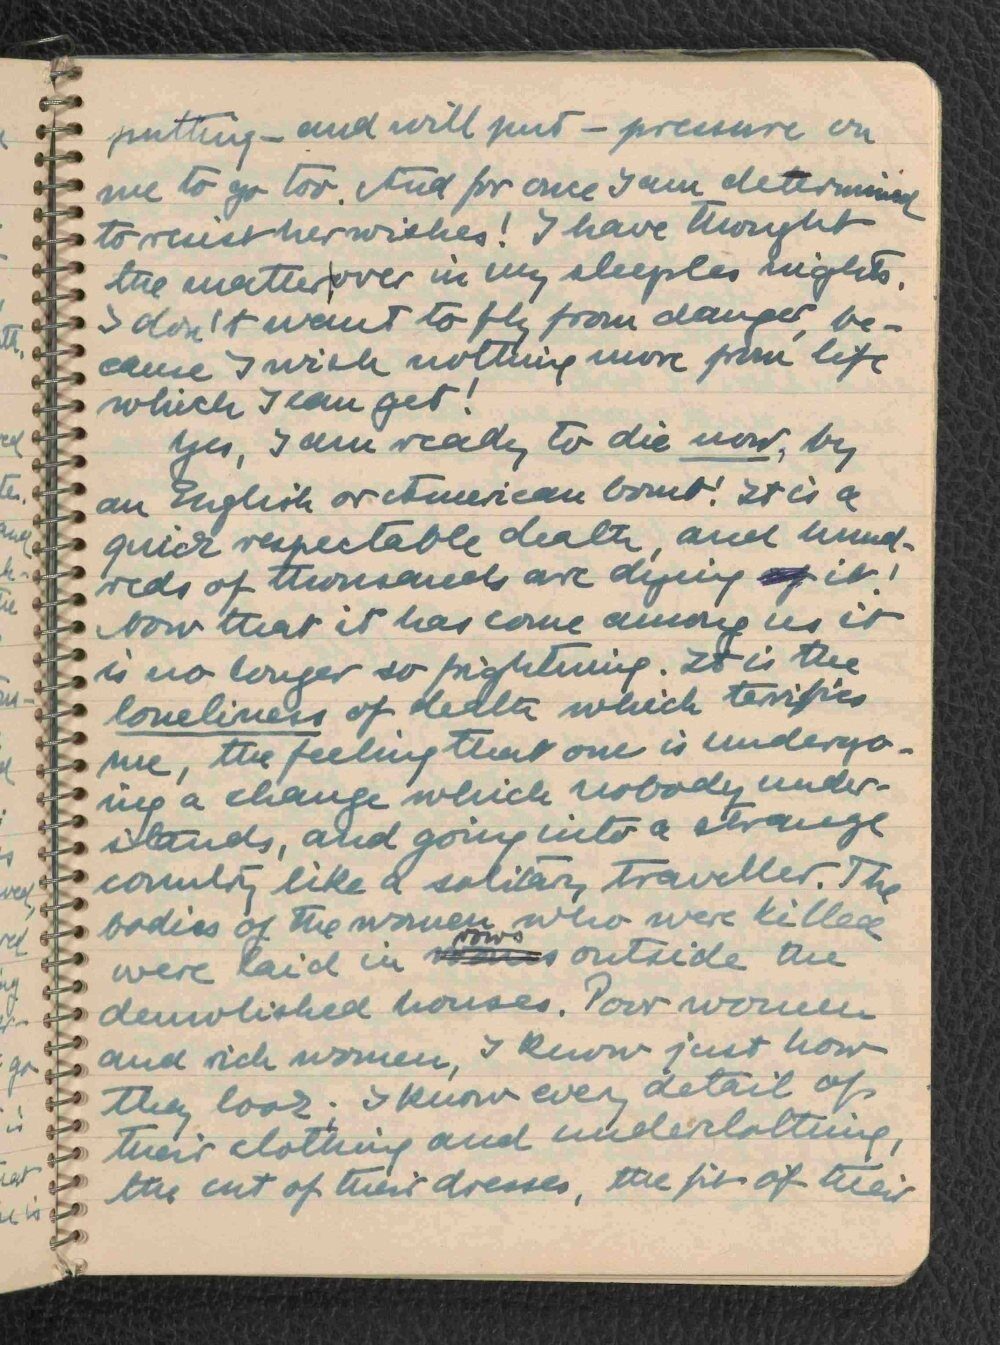 putting – and will put – pressure on
me to go too. And for once I am determined
to resist her wishes! I have thought
the matter over in my sleepless nights.
I don't want to fly from danger, be-
cause I wish nothing more from life
which I can get!
Yes, I am ready to die now, by
an English or American bomb! It is a
quick respectable death, and hund-
reds of thousands are dying it!
Now that it has come among us it
is no longer so frightening. It is the
loneliness of death which terrifies
me, the feeling that one is undergo-
ing a change which nobody under-
stands, and going into a strange
country like a solitary traveller. The
bodies of the women who were killed
were laid in rows outside the
demolished houses. Poor women
and rich women, I know just how
they look; I know every detail of
their clothing and underclothing,
the cut of their dresses, the fit of their